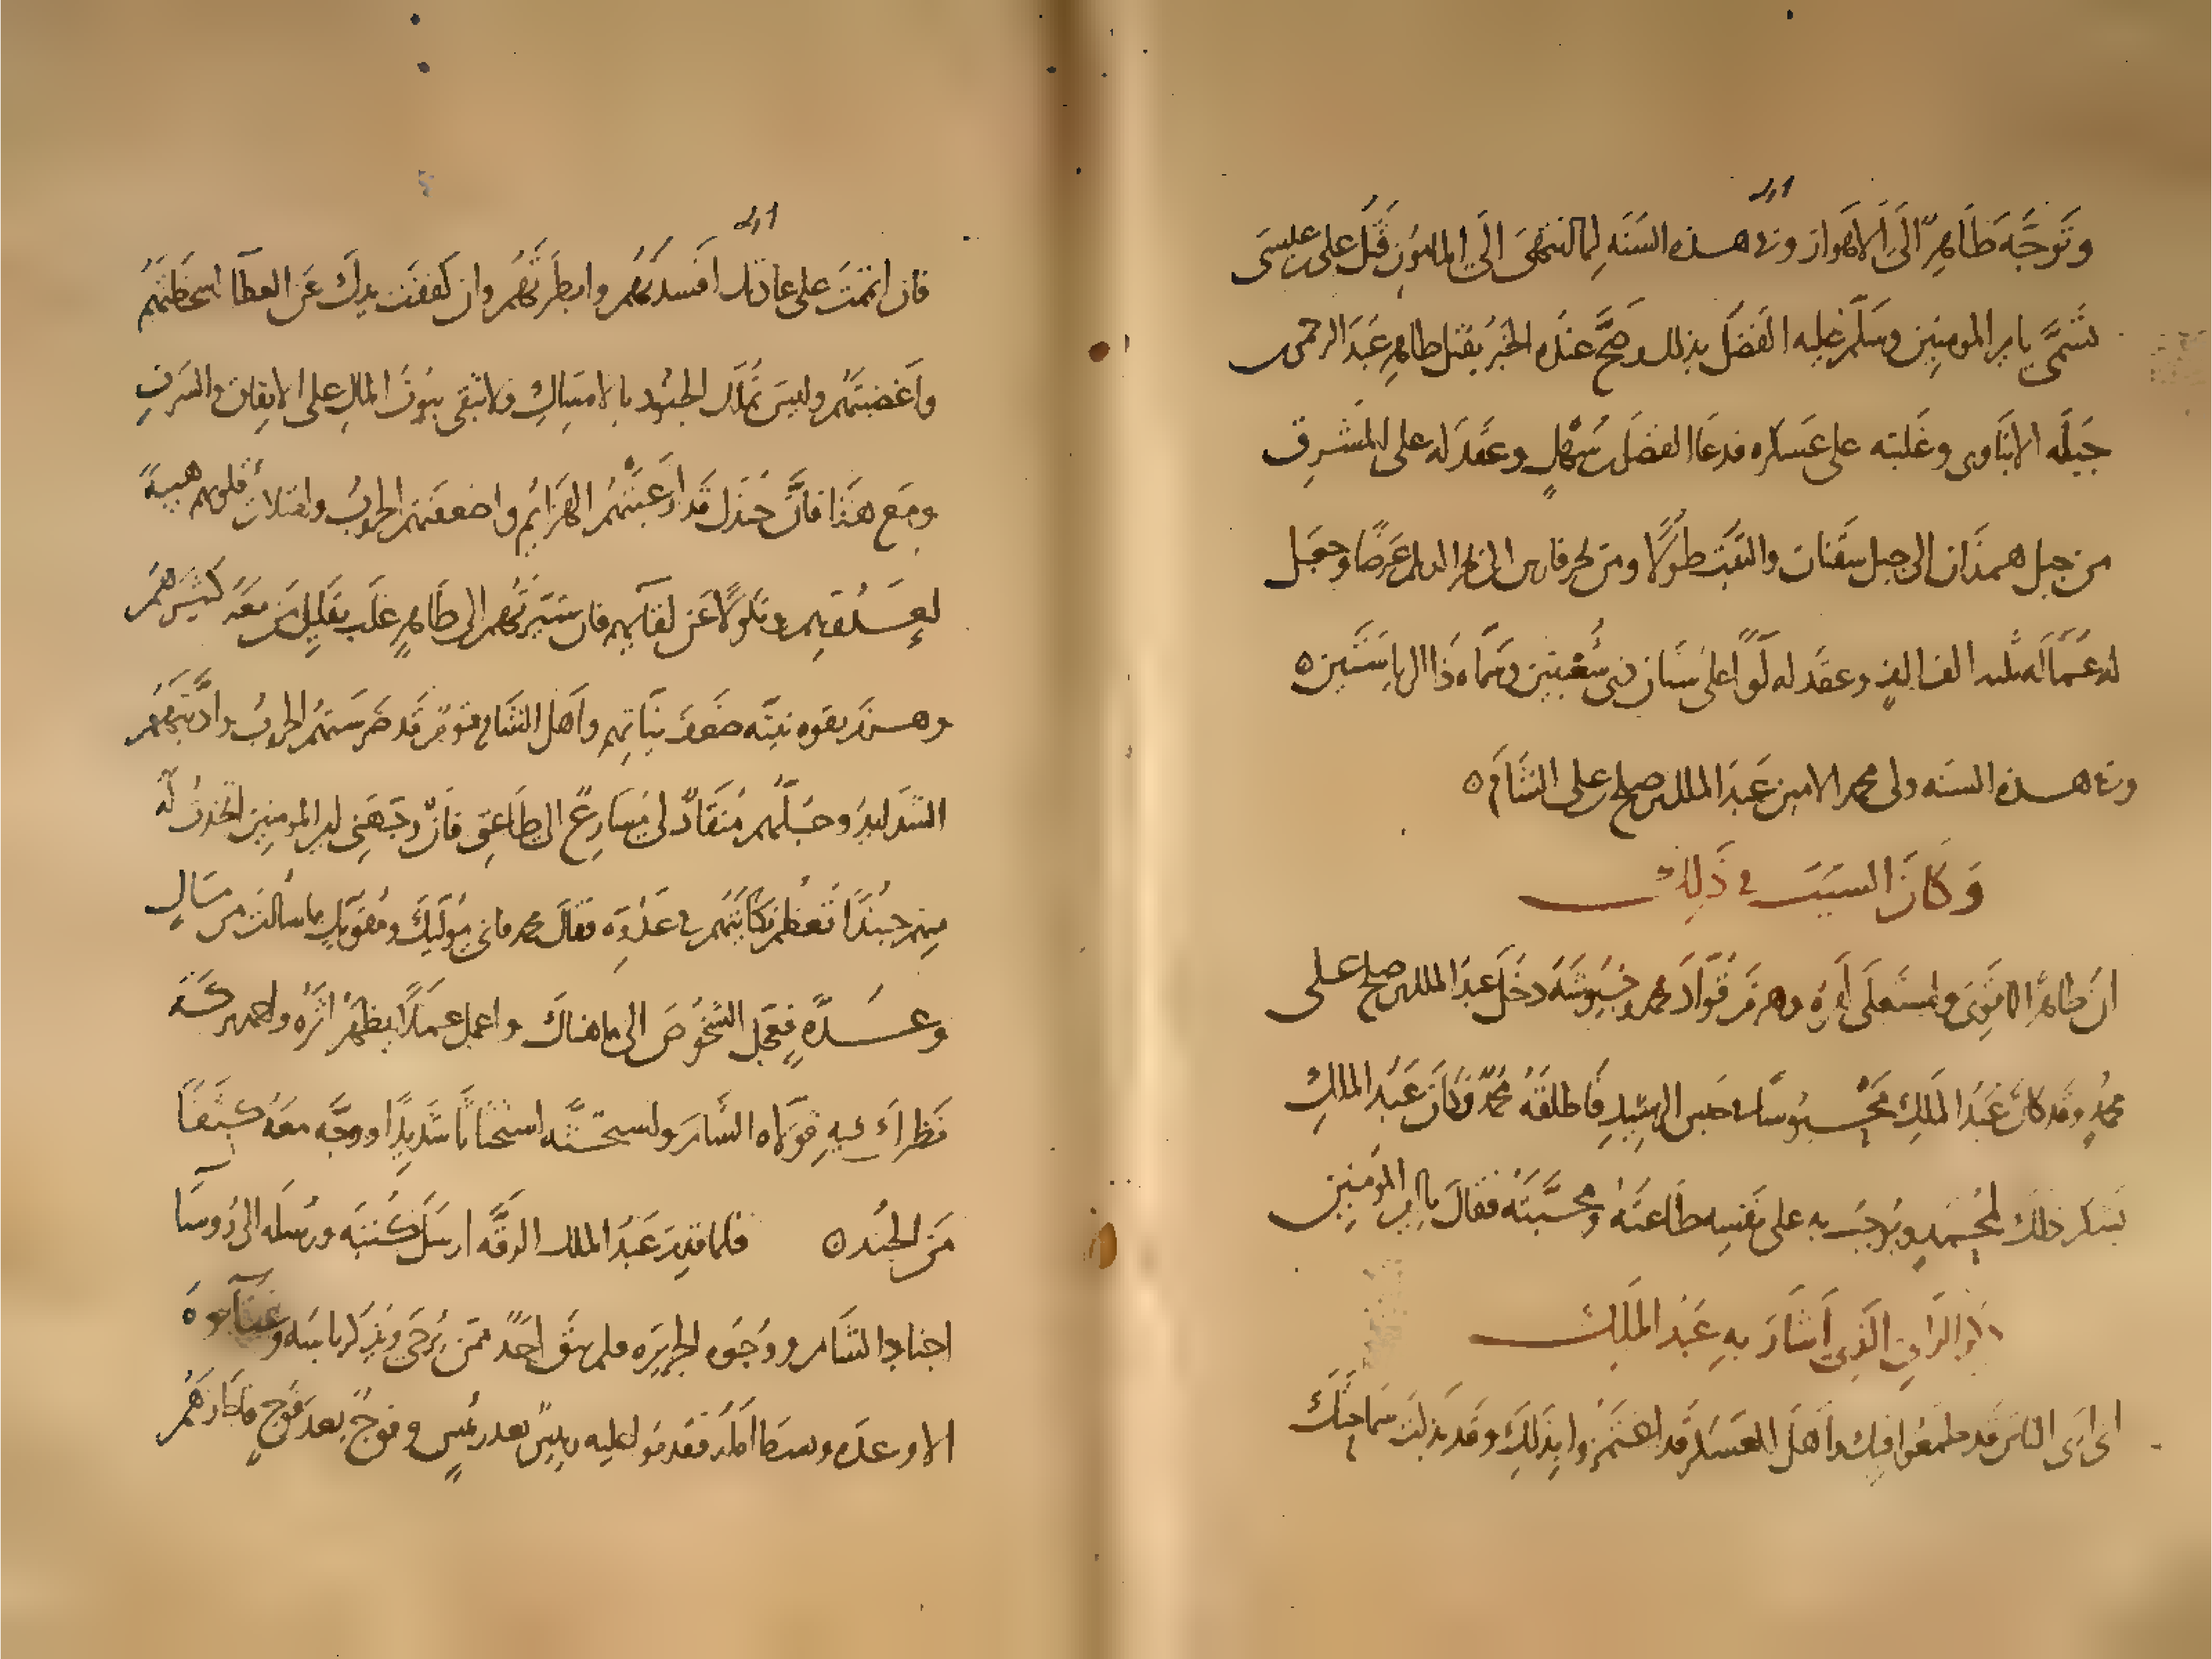 وتوجه طاهر الى الاهواز وفى هذه السنه لما انتهى الى المامون قتل على بن عيسى
تسمى بامير المومنين وسلم عليه الفضل بذلك وصح عنده الخبر بقتل طاهر عبد الرحمن بن
جبله الابناوى وغلبته على عسكره فدعا الفضل بن سهل وعقد له على المشرق
من جبل همذان الى جبل سقنان والتبت طولا ومن بحر فارس الى بحر الديلم عرضا وجعل
له عماله ثلثه الف الف وعقد له لوا على سنان ذى شعبتين وسماه ذا الرياستين ٥
وفى هذه السنه ولى محمد الامين عبد الملك بن صلح على الشام ٥
وكان السبب فى ذلك
ان طاهرا لما قوى واستعلى امره وهزم قواد محمد وجيوشه دخل عبد الملك بن صلح على
محمد وقد كان عبد الملك محبوسا فى حبس الرشيد فاطلقه محمد وكان عبد الملك
يشكر ذلك لمحمد ويوجب به على نفسه طاعته ومحبته فقال يا امير المومنين
ذكر الراى الذى اشار به عبد الملك
انى ارى الناس قد طمعوا فيك واهل العسكر قد اهتمزوا بذلك وقد بذلت سماحتك
فان اتممت على عادتك افسدتهم وابطرتهم وان كففت يدك عن العطآ اسخطتهم
واغضبتهم وليس تملك الجنود بالامساك ولا تبقى بيوت المال على الانفاق والسرف
ومع هذا فان جندك قد ارعبتهم الهزايم واضعفتهم الحروب وامتلات قلوبهم هيبة
لعدوهم ونكولا عن لقآيهم فان سيرتهم الى طاهر غلب بقليل من معه كثيرهم
وهزم بقوه نيته ضعف نياتهم واهل الشام قوم قد ضرستهم الحروب وادبتهم
الشدايد وجلهم منقاد لى مسارع الى طاعتى فان وجهنى امير المومنين اتخذت له
منهم جندا تعظم نكايتهم فى عدوه فقال محمد فانى موليك ومقويك بما سالت من مال
وعدة فعجل الشخوص الى ما هناك واعمل عملا يظهر اثره ويحمد بركته
نظراك فيه فولاه الشام واستحثه استحثاثا شديدا ووجه معه كثفا
من الجند ٥ فلما قدم عبد الملك الرقه ارسل كتبه ورسله الى روسآ
اجناد الشام ووجوه الجزيره فلم يبق احد ممن يرجى ويذكر باسه وغنآوه
الا وعده وبسط امله فقدموا عليه رييس بعد رييس وفوج بعد فوج فكان هم